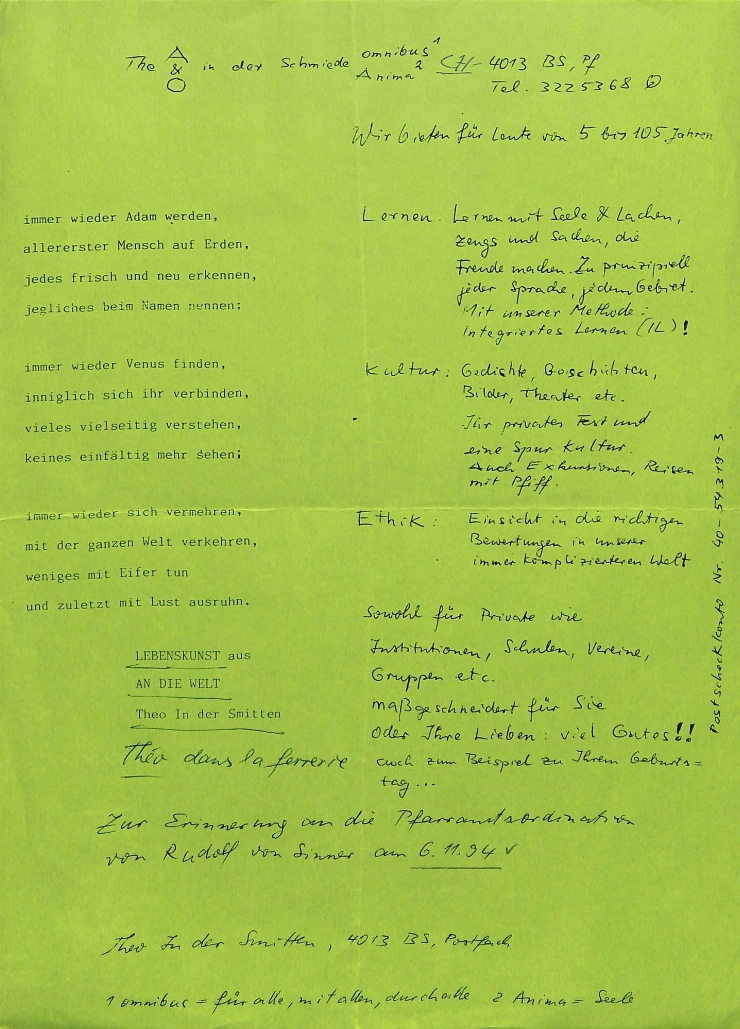 The A & O in der Schmiede omnibus¹ Anima² CH-4013 BS, Pf
Tel. 3225368
Wir bieten für Leute von 5 bis 105 Jahren
immer wieder Adam werden,
allererster Mensch auf Erden,
jedes frisch und neu erkennen,
jegliches beim Namen nennen;
immer wieder Venus finden,
inniglich sich ihr verbinden,
vieles vielseitig verstehen,
keines einfältig mehr sehen;
immer wieder sich vermehren,
mit der ganzen Welt verkehren,
weniges mit Eifer tun
und zuletzt mit Lust ausruhn.
LEBENSKUNST aus
AN DIE WELT
Theo In der Smitten
Théo dans la ferrerie
Lernen. Lernen mit Seele & Lachen,
zengs und Sachen, die
Freude machen. Zu prinzipiell
jeder Sprache, jedem Gebiet.
Mit unserer Methode:
Integriertes Lernen (IL)!
Kultur: Gedichte, Geschichten,
Bilder, Theater etc.
Ihr privates Fest und
eine Spur Kultur.
Auch Exkursionen, Reisen
mit Pfiff.
Ethik: Einsicht in die richtigen
Bewertungen in unserer
immer komplizierteren Welt
Sowohl für Private wie
Institutionen, Schulen, Vereine,
Gruppen etc.
maßgeschneidert für Sie
oder Ihre Lieben: viel Gutes!!
auch zum Beispiel zu Ihrem Geburts=
tag...
Postscheckkonto Nr. 40-54319-3
Zur Erinnerung an die Pfarramtsordination
von Rudolf von Sinner am 6.11.94
Theo In der Smitten, 4013 BS, Postfach
1 omnibus = für alle, mit allen, durch alle 2 Anima = Seele